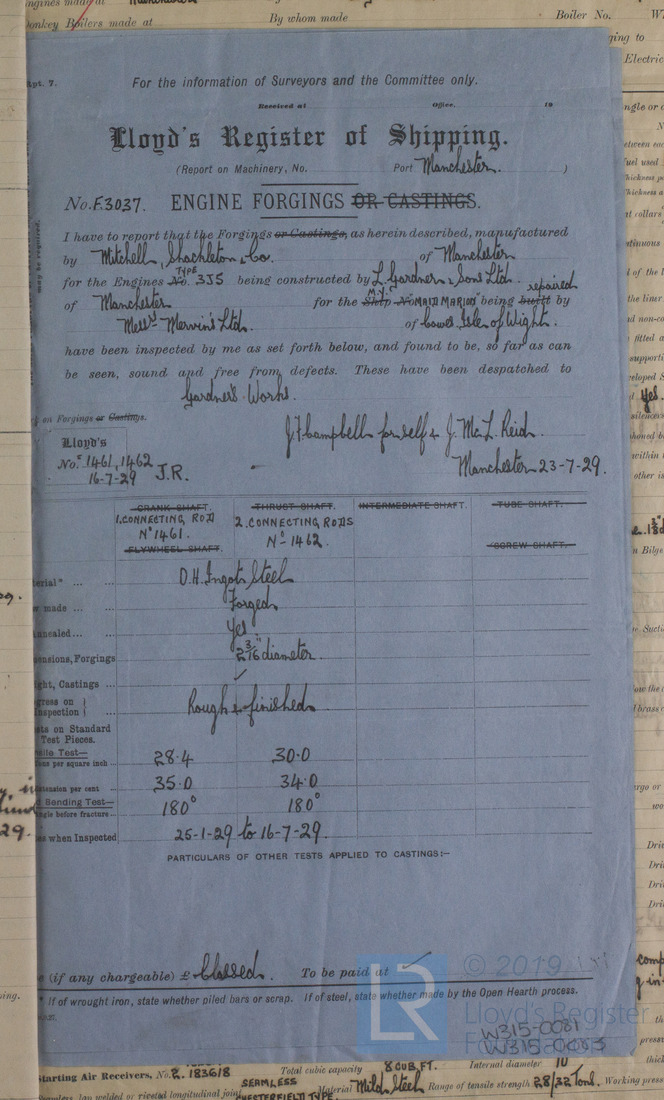 Engines made at Manchester
Donkey Boilers made at By whom made Boiler No.
Rpt. 7.
For the information of Surveyors and the Committee only.
Received at Office, 19
Lloyd's Register of Shipping.
(Report on Machinery, No. Port Manchester. )
No. F.3037. ENGINE FORGINGS OR CASTINGS.
I have to report that the Forgings or Castings, as herein described, manufactured
by Mitchell, Shackleton & Co. of Manchester
for the Engines No. TYPE 3J5 being constructed by L. Gardner & Sons Ltd.
of Manchester for the Ship No M.Y. MAID MARION being built repaired by
Messrs Marvin's Ltd. of Cowes Isle of Wight.
have been inspected by me as set forth below, and found to be, so far as can
be seen, sound and free from defects. These have been despatched to
Gardner's Works.
on Forgings or Castings.
J F Campbell for self & J. McL. Reid.
Lloyd's
No.s 1461, 1462
16-7-29 J.R.
Manchester 23-7-29.
CRANK SHAFT. THRUST SHAFT. INTERMEDIATE SHAFT. TUBE SHAFT.
1. CONNECTING ROD 2. CONNECTING RODS
No 1461. No 1462.
FLYWHEEL SHAFT. SCREW SHAFT.
O.H. Ingot Steel
made ... Forged
Annealed... Yes
Forgings 2 3/16" diameter.
Castings ... ✓
Inspection Rough & finished
on Standard
Test Pieces.
Test—
per square inch ... 28.4 30.0
per cent 35.0 34.0
Bending Test—
before fracture... 180° 180°
when Inspected 25-1-29 to 16-7-29.
PARTICULARS OF OTHER TESTS APPLIED TO CASTINGS:—
(if any chargeable) £ Classed. To be paid at ✓
* If of wrought iron, state whether piled bars or scrap. If of steel, state whether made by the Open Hearth process.
LR
© 2019
Lloyd's Register
W315-0081
W315-0083
Starting Air Receivers, No. 2. 183618 Total cubic capacity 8 CUB. FT. Internal diameter 10
SEAMLESS
Seamless, lap welded or riveted longitudinal joint Material Mild Steel Range of tensile strength 28/32 Tons. Working press